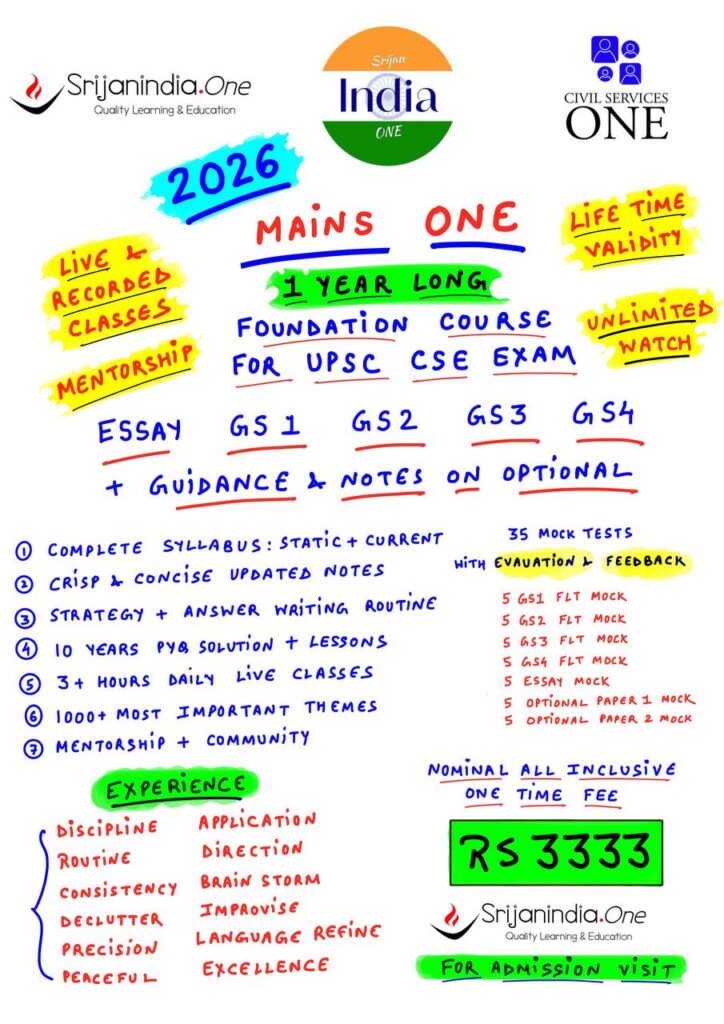 Srijanindia.One
Quality Learning & Education
Srijan
India
ONE
CIVIL SERVICES
ONE
2026
MAINS ONE
1 YEAR LONG
FOUNDATION COURSE
FOR UPSC CSE EXAM
LIVE &
RECORDED
CLASSES
MENTORSHIP
LIFE TIME
VALIDITY
UNLIMITED
WATCH
ESSAY GS 1 GS 2 GS3 GS4
+ GUIDANCE & NOTES ON OPTIONAL
1 COMPLETE SYLLABUS: STATIC + CURRENT
2 CRISP & CONCISE UPDATED NOTES
3 STRATEGY + ANSWER WRITING ROUTINE
4 10 YEARS PYQ SOLUTION + LESSONS
5 3+ HOURS DAILY LIVE CLASSES
6 1000+ MOST IMPORTANT THEMES
7 MENTORSHIP + COMMUNITY
35 MOCK TESTS
WITH EVAUATION & FEEDBACK
5 GS1 FLT MOCK
5 GS2 FLT MOCK
5 GS3 FLT MOCK
5 GS4 FLT MOCK
5 ESSAY MOCK
5 OPTIONAL PAPER 1 MOCK
5 OPTIONAL PAPER 2 MOCK
EXPERIENCE
DISCIPLINE APPLICATION
ROUTINE DIRECTION
CONSISTENCY BRAIN STORM
DECLUTTER IMPROVISE
PRECISION LANGUAGE REFINE
PEACEFUL EXCELLENCE
NOMINAL ALL INCLUSIVE
ONE TIME FEE
RS 3333
Srijanindia.One
Quality Learning & Education
FOR ADMISSION VISIT